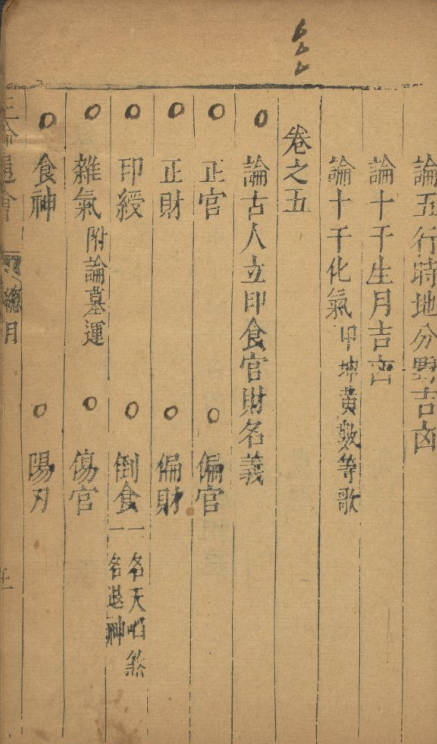 論五行時地分野吉㐫
論十干生月吉㐫
論十干化氣 甲坤黃數等歌
卷之五
○ 論古人立印食官財名義
○ 正官 ○ 偏官
○ 正財 ○ 偏財
○ 印綬 ○ 倒食 一名天啗煞 一名退神
○ 雜氣 附論墓運 ○ 傷官
○ 食神 ○ 陽刃